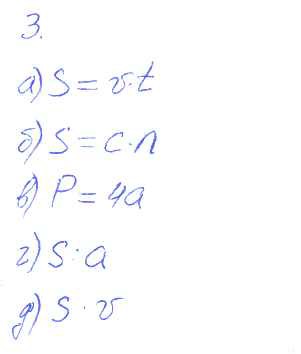 3.
а) S = v·t
б) S = c·n
в) P = 4a
г) S : a
д) S · v